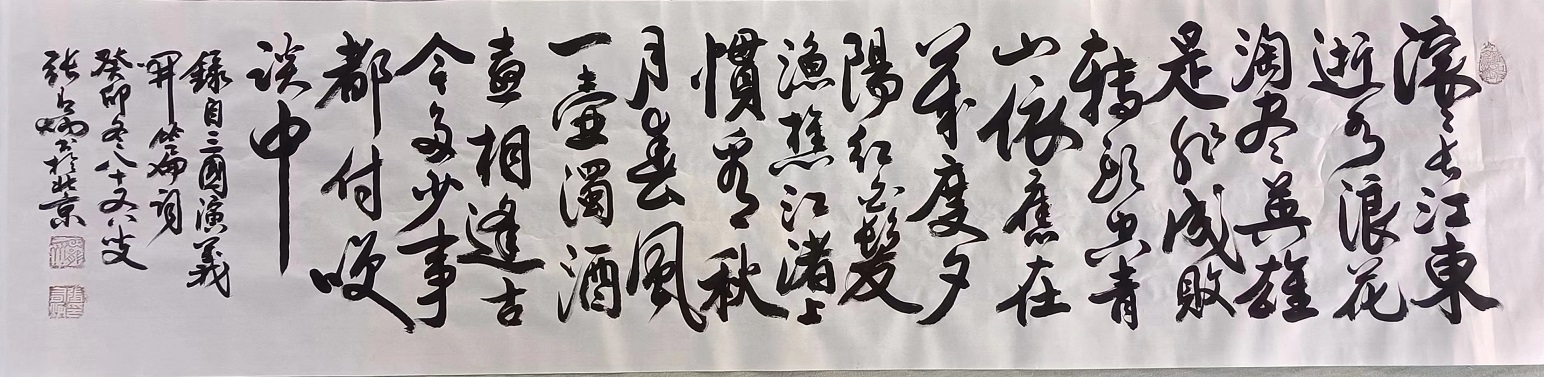 滚〻长江東
逝水浪花
淘尽英雄
是非成敗
轉頭空青
山依舊在
幾度夕
陽红白髮
漁樵江渚上
慣看秋
月春風
一壺濁酒
喜相逢古
今多少事
都付咲
談中
錄自三國演義
開篇詞
癸卯冬八十又八叟
張占炳书於北京